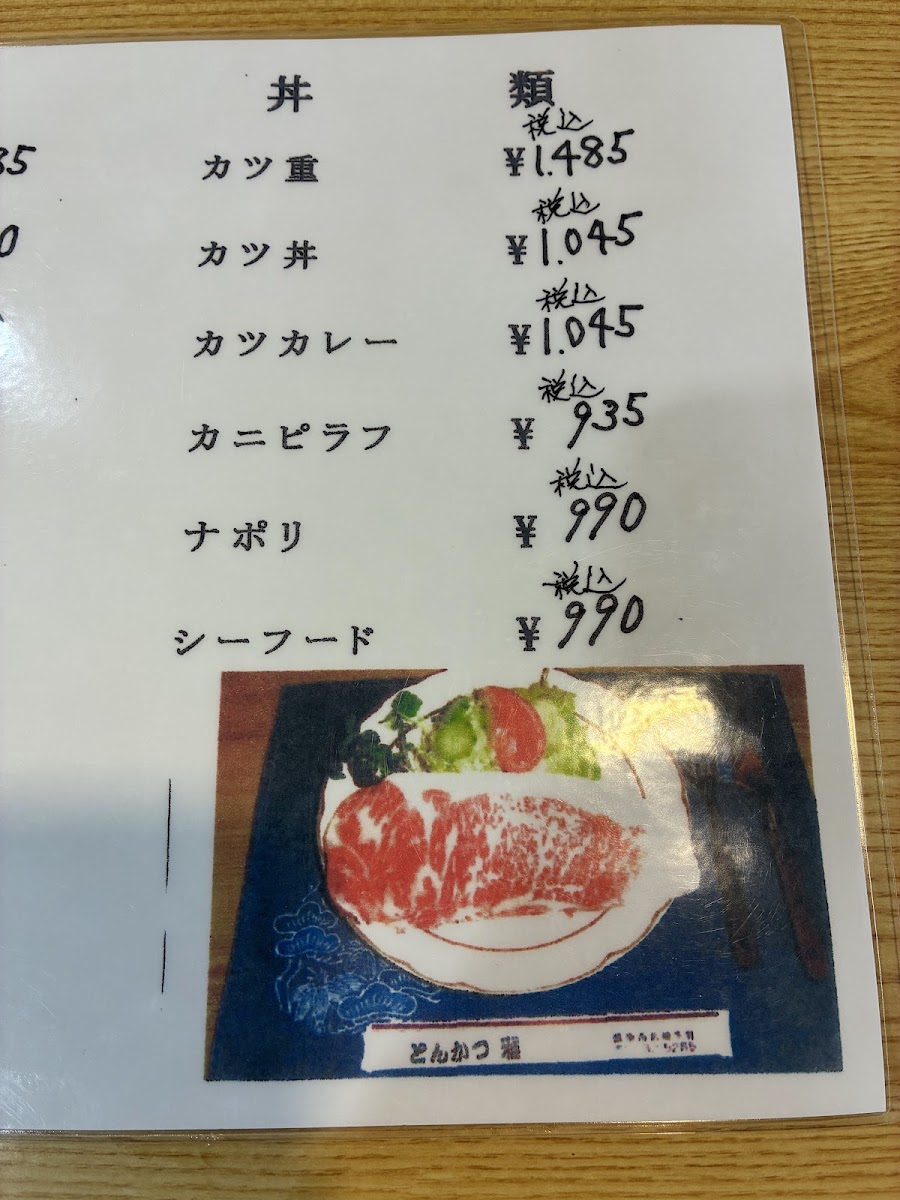 丼 類
税込
カツ重 ¥1.485
税込
カツ丼 ¥1.045
税込
カツカレー ¥1.045
税込
カニピラフ ¥935
税込
ナポリ ¥990
税込
シーフード ¥990
とんかつ